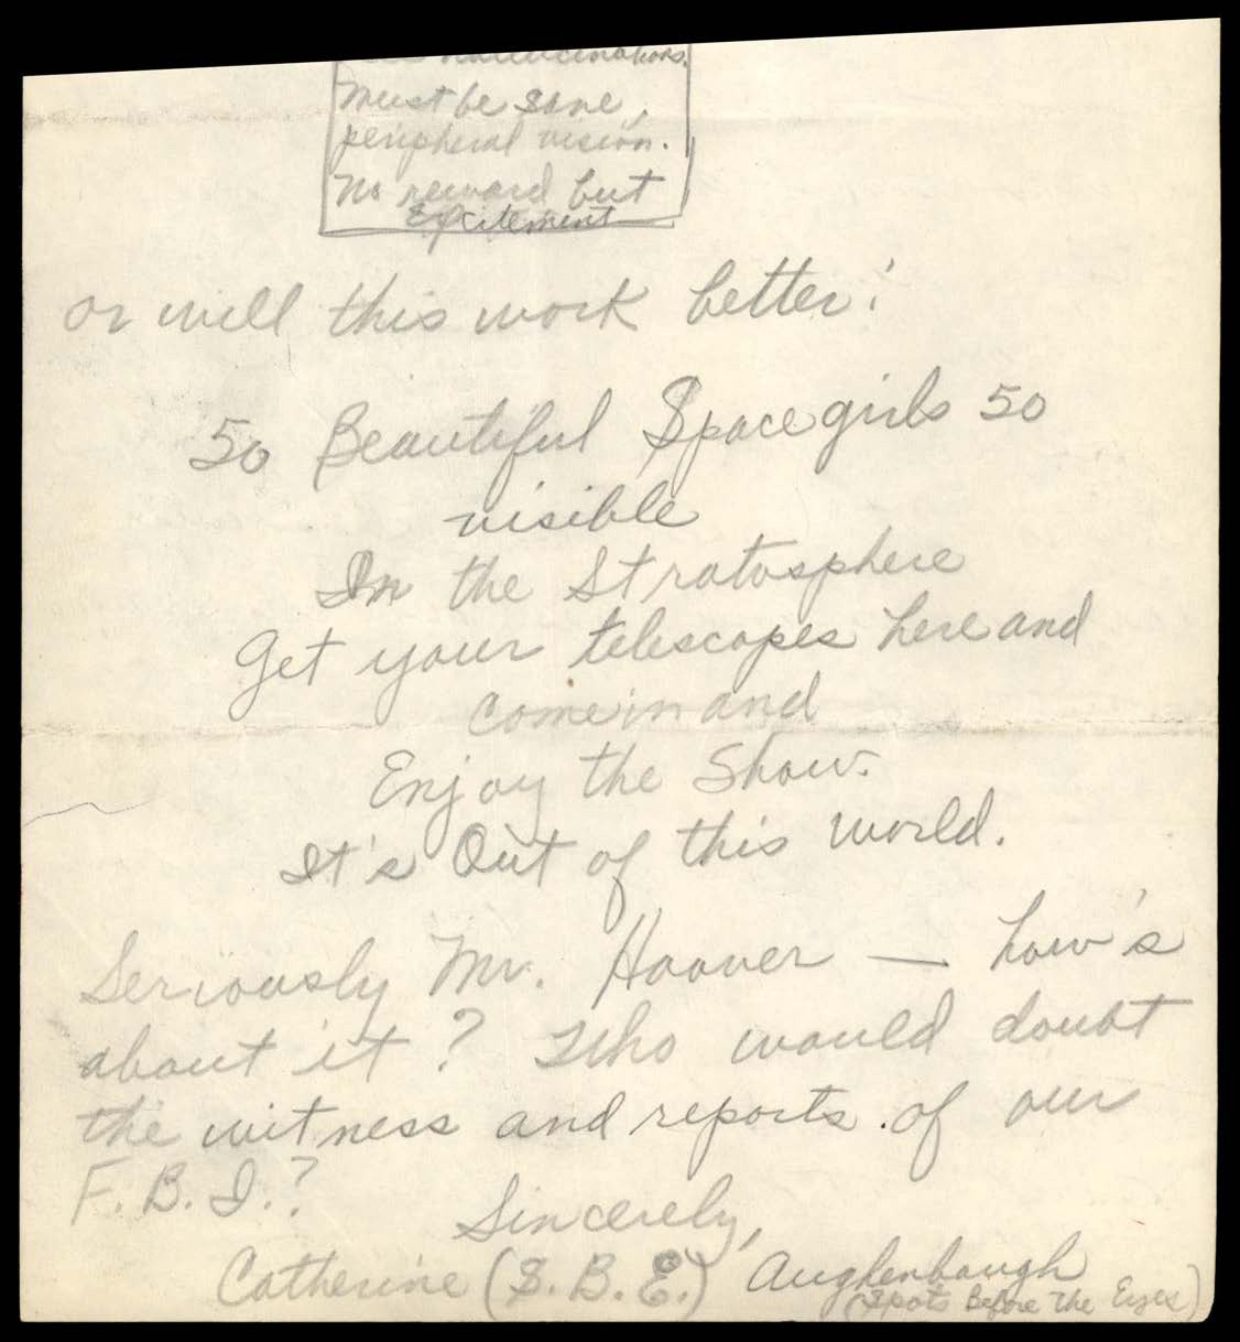 hallucinations.
Must be sane,
peripheral vision.
No reward but
Excitement
or will this work better!
50 Beautiful Spacegirls 50
visible
In the Stratosphere
Get your telescopes here and
come in and
Enjoy the Show.
It's Out of this world.
Seriously Mr. Hoover — how's
about it? Who would doubt
the witness and reports of our
F. B. I.?
Sincerely,
Catherine (S. B. E.) Aughenbaugh
(Spots Before The Eyes)